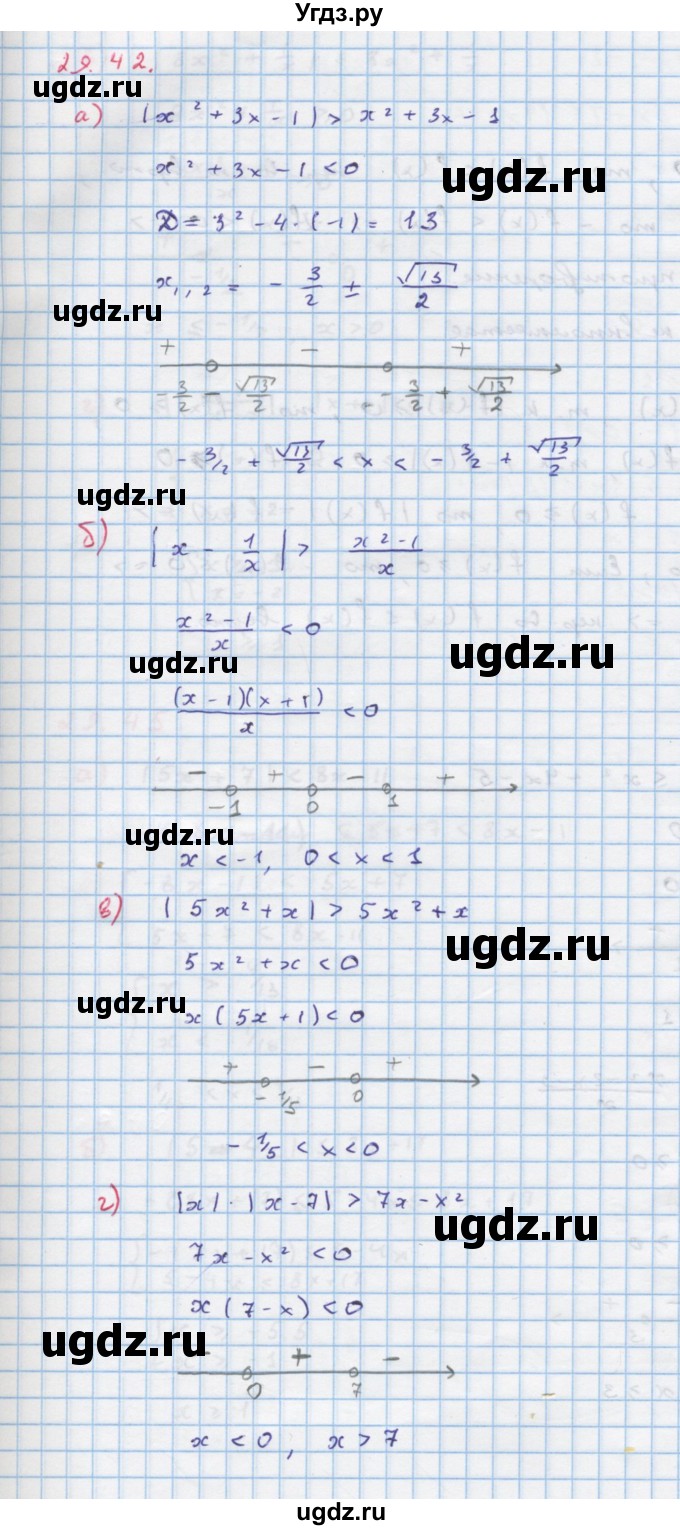 Угдз.ру
29.42.
ugdz.ru
а) |x² + 3x - 1| > x² + 3x - 1
x² + 3x - 1 < 0
ugdz.ru
D = 3² - 4·(-1) = 13
x₁,₂ = - 3/2 ± √13/2
ugdz.ru
+ - +
-3/2 - √13/2 - 3/2 + √13/2
- 3/2 + √13/2 < x < - 3/2 + √13/2
ugdz.ru
б) |x - 1/x| > x²-1/x
x²-1/x < 0
ugdz.ru ugdz.ru
(x-1)(x+1)/x < 0
- + - +
-1 0 1
ugdz.ru
x < -1, 0 < x < 1
в) |5x² + x| > 5x² + x
ugdz.ru
5x² + x < 0
ugdz.ru
x(5x+1) < 0
+ - +
-1/5 0
-1/5 < x < 0
г) |x|·|x-7| > 7x - x²
ugdz.ru
7x - x² < 0
x(7-x) < 0
ugdz.ru
- + -
0 7
x < 0, x > 7
ugdz.ru